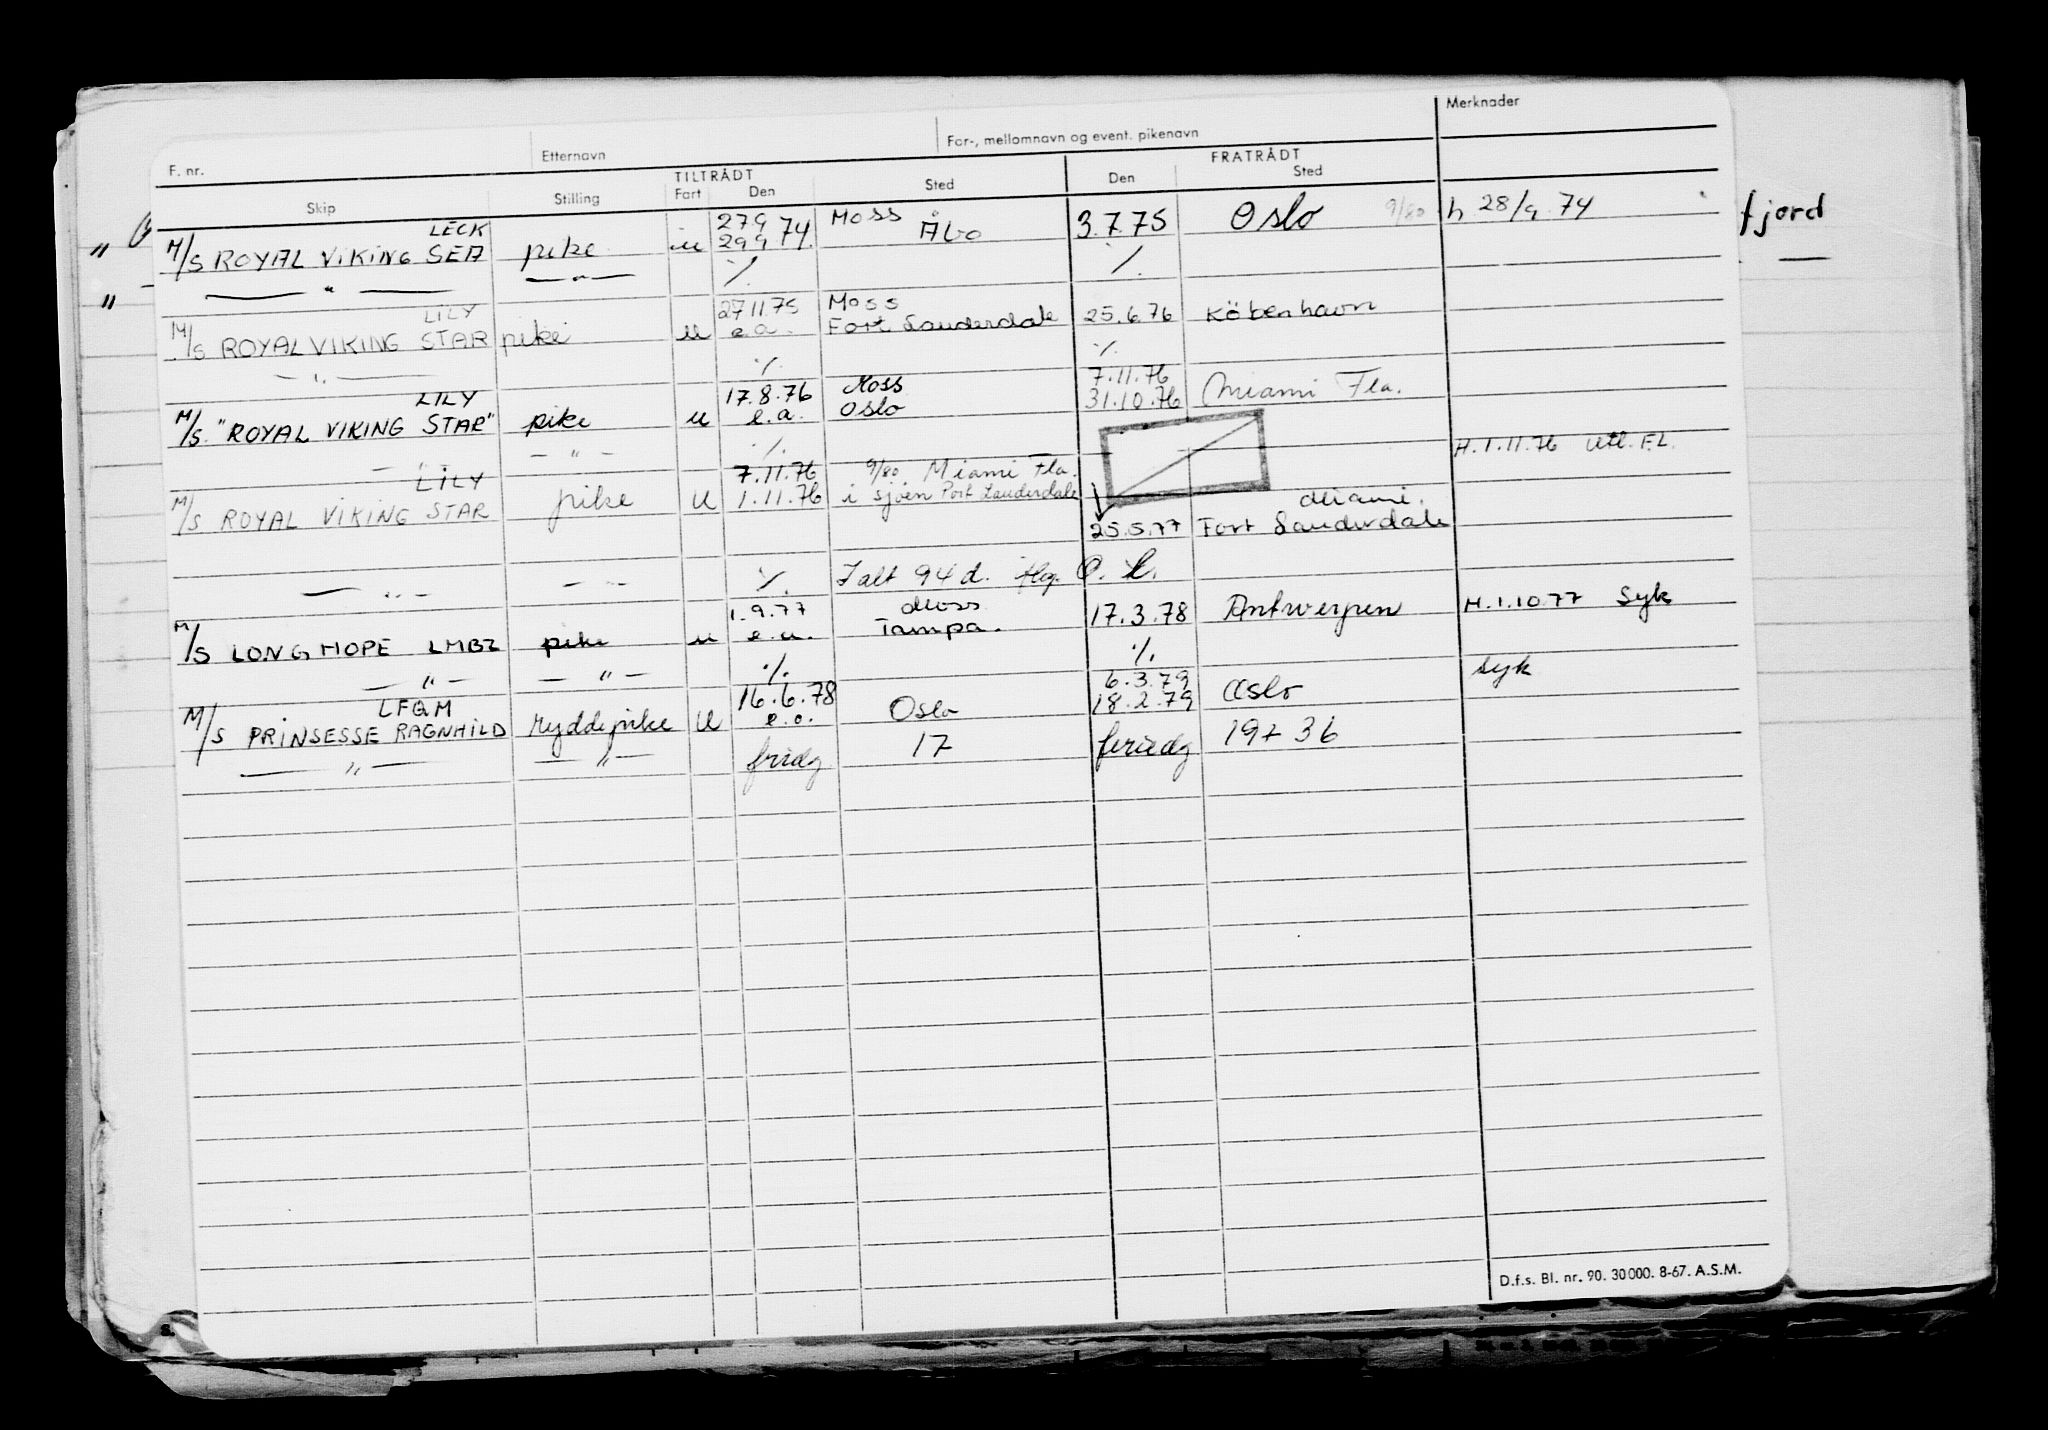 F. nr. Etternavn For-, mellomnavn og event. pikenavn Merknader
TILTRÅDT FRATRÅDT
Skip Stilling Fart Den Sted Den Sted
LECK 27 9 74 Moss
M/S ROYAL VIKING SEA pike u 29 9 74. Åbo 3.7.75 Oslo 9/80 h 28/9.74
— " — — " — ./. ./.
LILY 27 11 75 Moss
M/S ROYAL VIKING STAR pike u e.a. Fort Lauderdale 25.6.76 Köbenhavn
— " — ./. ./.
LILY 17.8.76 Moss 7.11.76
M/S. "ROYAL VIKING STAR" pike u e.a. Oslo 31.10.76 Miami Fla.
— " — ./. H.1.11.76 Utl. F.L.
LILY 7.11.76 9/80 Miami Fla.
M/S ROYAL VIKING STAR pike U 1.11.76 i sjøen Port Lauderdale Miami.
25.5.77 Fort Lauderdale
— " — — " — ./. I alt 94 d.
1.9.77 Moss
M/S LONG HOPE LMBZ pike u e.a. Tampa. 17.3.78 Antwerpen H.1.10.77 Syk
— " — — " — ./. ./.
LFQM 16.6.78 6.3.79 Syk
M/S PRINSESSE RAGNHILD ryddepike U e.o. Oslo 18.2.79 Oslo
— " — — " — fridg 17 feriedg 19+36
fjord
—
"
"
D.f.s. Bl. nr. 90. 30 000. 8-67. A.S.M.